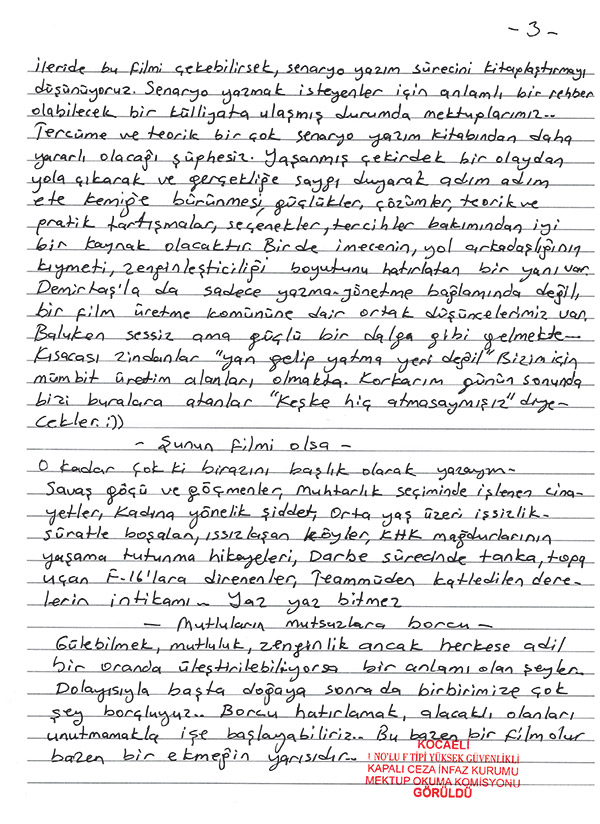 - 3 -
ileride bu filmi çekebilirsek, senaryo yazım sürecini kitaplaştırmayı
düşünüyoruz. Senaryo yazmak isteyenler için anlamlı bir rehber
olabilecek bir külliyata ulaşmış durumda mektuplarımız..
Tercüme ve teorik bir çok senaryo yazım kitabından daha
yararlı olacağı şüphesiz. Yaşanmış çekirdek bir olaydan
yola çıkarak ve gerçekliğe saygı duyarak adım adım
ete kemiğe bürünmesi, güçlükler, çözümler, teorik ve
pratik tartışmalar, seçenekler, tercihler bakımından iyi
bir kaynak olacaktır. Bir de imecenin, yol arkadaşlığının
kıymeti, zenginleştiriciliği boyutunu hatırlatan bir yanı var.
Demirtaş'la da sadece yazma-yönetme bağlamında değil,
bir film üretme komününe dair ortak düşüncelerimiz var.
Baluken sessiz ama güçlü bir dalga gibi gelmekte..
Kısacası zindanlar "yan gelip yatma yeri değil" Bizim için
mümbit üretim alanları, olmakta. Korkarım günün sonunda
bizi buralara atanlar "Keşke hiç atmasaymışız" diye-
cekler. :))
- Şunun filmi olsa -
O kadar çok ki birazını başlık olarak yazayım-
Savaş göçü ve göçmenler, Muhtarlık seçiminde işlenen cina-
yetler, Kadına yönelik şiddet, Orta yaş üzeri işsizlik-
süratle boşalan, ıssızlaşan köyler, KHK mağdurlarının
yaşama tutunma hikayeleri, Darbe sürecinde tanka, topa
uçan F-16'lara direnenler, Teammüden katledilen dere-
lerin intikamı.. Yaz yaz bitmez
- Mutluların mutsuzlara borcu -
Gülebilmek, mutluluk, zenginlik ancak herkese adil
bir oranda üleştirilebiliyorsa bir anlamı olan şeyler.
Dolayısıyla başta doğaya sonra da birbirimize çok
şey borçluyuz.. Borcu hatırlamak, alacaklı olanları
unutmamakla işe başlayabiliriz.. Bu bazen bir film olur
bazen bir ekmeğin yarısıdır..
KOCAELİ
1 NO'LU F TİPİ YÜKSEK GÜVENLİKLİ
KAPALI CEZA İNFAZ KURUMU
MEKTUP OKUMA KOMİSYONU
GÖRÜLDÜ